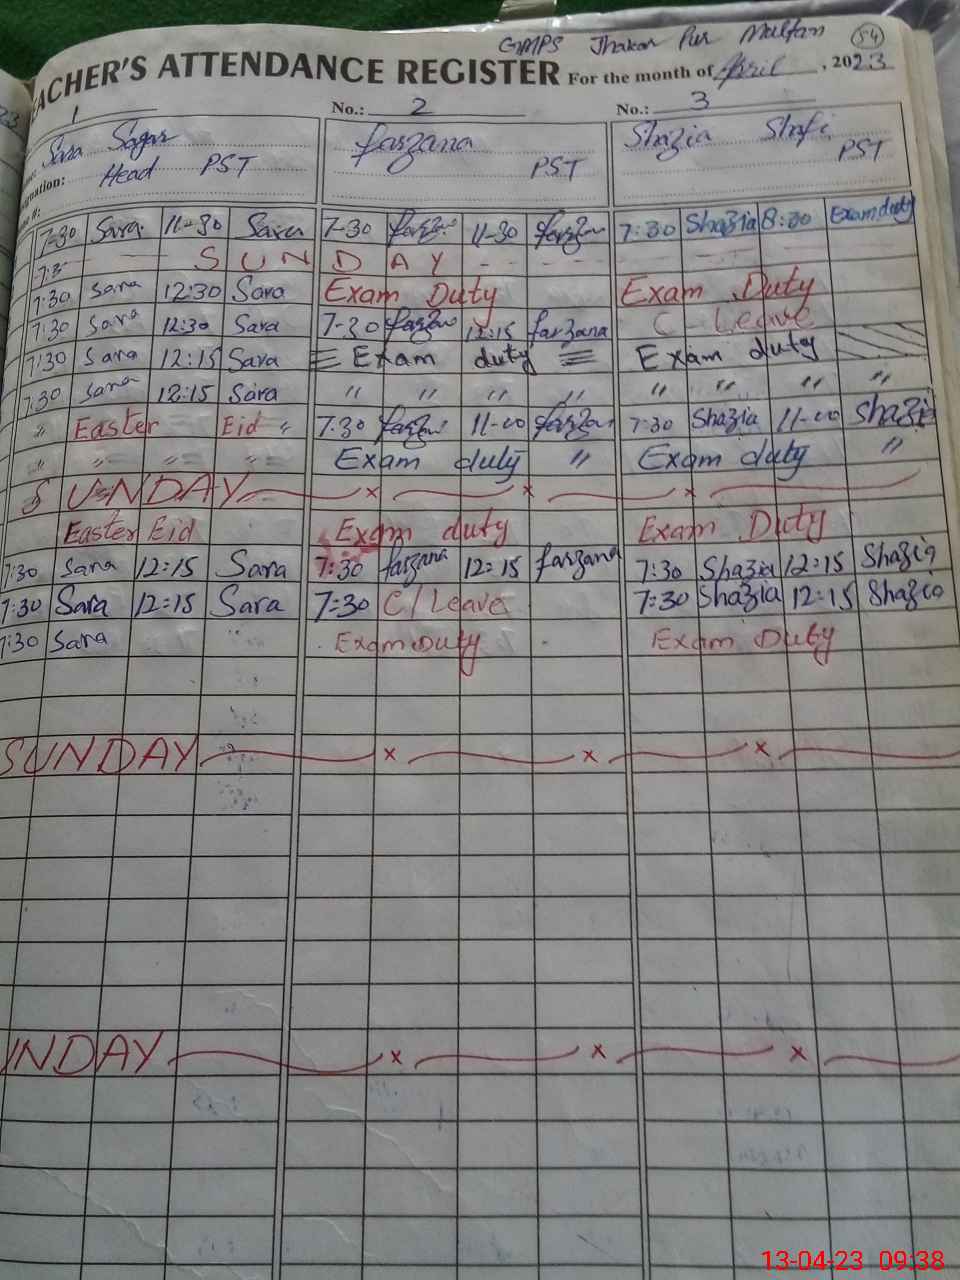 GMPS Jhakar Pur Multan 54
EACHER'S ATTENDANCE REGISTER For the month of April, 2023
1 No.: 2 No.: 3
Sara Sagar farzana Shazia Shafi
gnation: Head PST PST PST
7-30 Sara 11-30 Sara 7-30 farzan 11-30 farzan 7:30 Shazia 8:30 Exam duty
7:3 SUNDAY
7:30 Sara 12:30 Sara Exam Duty Exam Duty
7:30 Sara 12:30 Sara 7-30 farzan 12:15 farzana C-Leave
7:30 Sara 12:15 Sara Exam duty Exam duty
7:30 Sara 12:15 Sara " " " " " " " "
" Easter Eid " 7:30 farzan 11-00 farzan 7:30 Shazia 11-00 Shazia
" " " " Exam duty " Exam duty "
SUNDAY x x x
Easter Eid Exam duty Exam Duty
7:30 Sara 12:15 Sara 7:30 farzana 12:15 farzana 7:30 Shazia 12:15 Shazia
7:30 Sara 12:15 Sara 7:30 C/Leave 7:30 Shazia 12:15 Shazia
7:30 Sara Exam Duty Exam Duty
SUNDAY x x x
UNDAY x x x
13-04-23 09:38